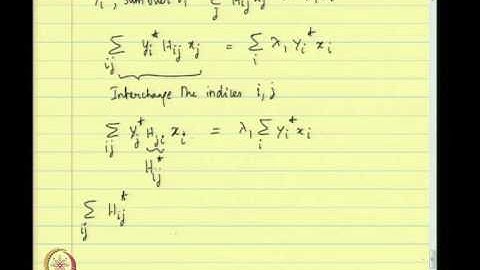 ∑_{ij} y_i^* H_{ij} x_j = ∑_i λ_1 y_i^* x_i
Interchange the indices i, j
∑_{ij} y_j^* H_{ji} x_i = λ_1 ∑_i y_i^* x_i
H_{ij}^*
∑_{ij} H_{ij}^*